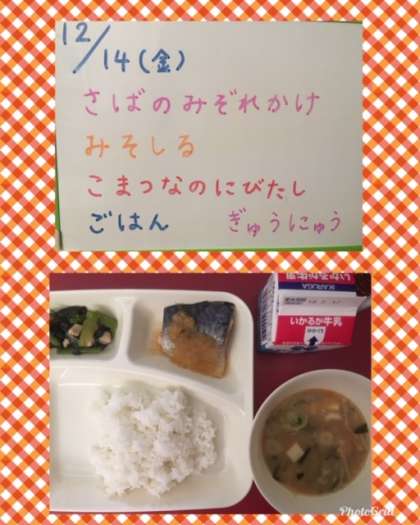 12/14(金)
さばのみぞれかけ
みそしる
こまつなのにびたし
ごはん ぎゅうにゅう
IKARUGA
いかるが牛乳
PhotoGrid